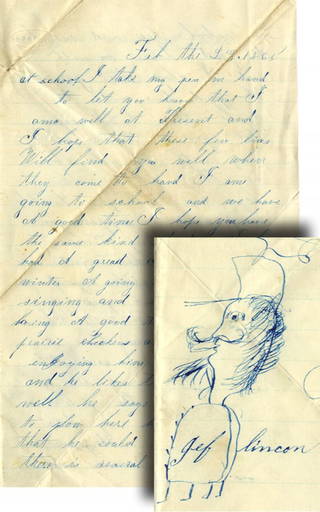 Feb the 24. 1865
at school I take my pen in hand
to let you know that I
am well at Present and
I hope that these few lines
Will find you well when
they come to hand I am
going to school and we have
at good times I hope you have
the same kind
had at gread
winter at going
singing and
having at good
prairie chickens
enjoying him
and he likes
well he says
to plow here
that he could
there is several
Jef lincon